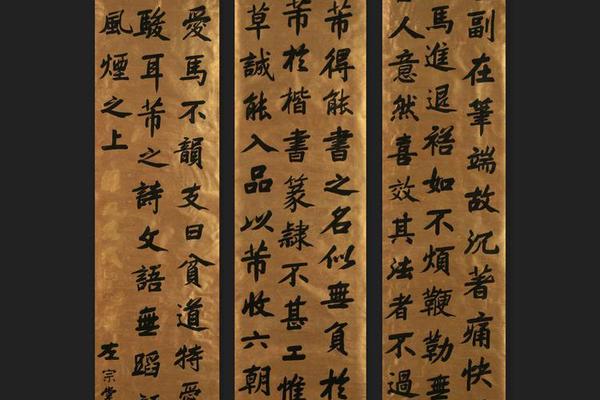 副在筆端故沉著痛快
馬進退裕如不煩鞭勒無
人意然喜效其法者不過
芾得能書之名似無負於
芾於楷書篆隸不甚工惟
草誠能入品以芾收六朝
愛馬不韻支曰貧道特愛
駿耳芾之詩文語無蹈
風煙之上
左宗棠